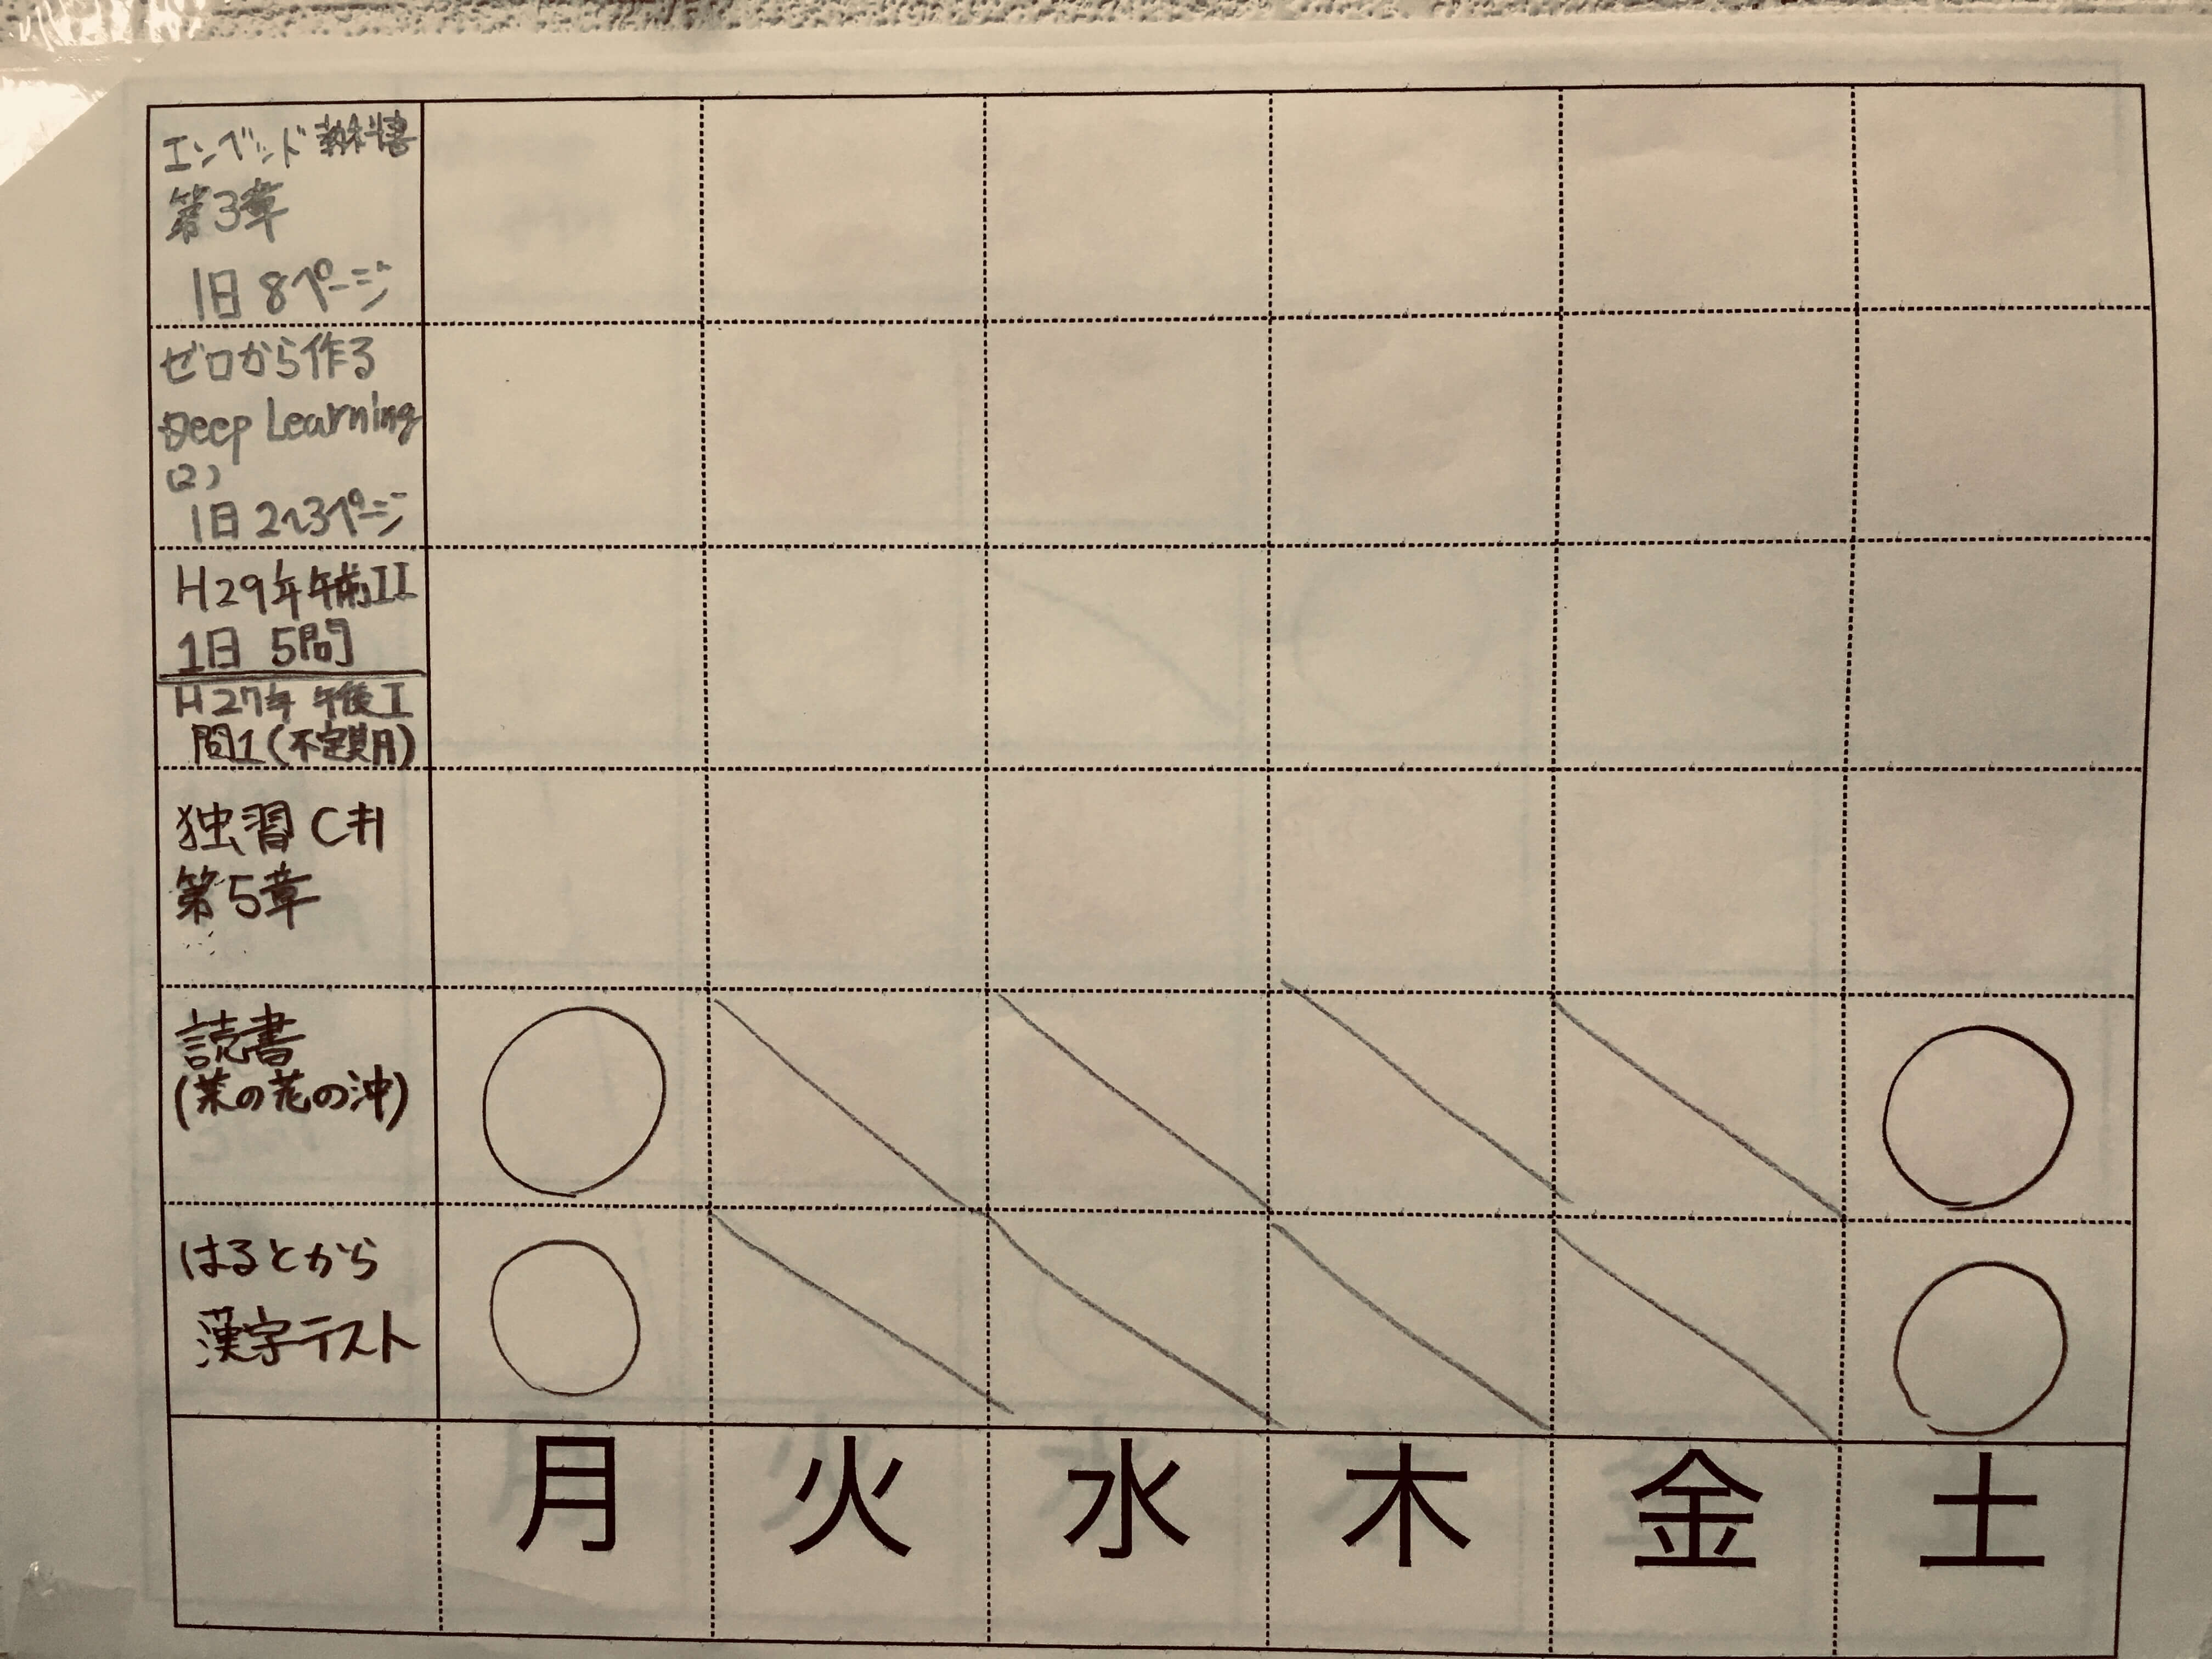 エンベッド教科書
第3章
1日 8ページ
ゼロから作る
Deep Learning
(2)
1日 2~3ページ
H29年午前II
1日 5問
H27年 午後I
問1(不定期)
独習 C#
第5章
読書
(菜の花の沖)
はるとから
漢字テスト
月 火 水 木 金 土